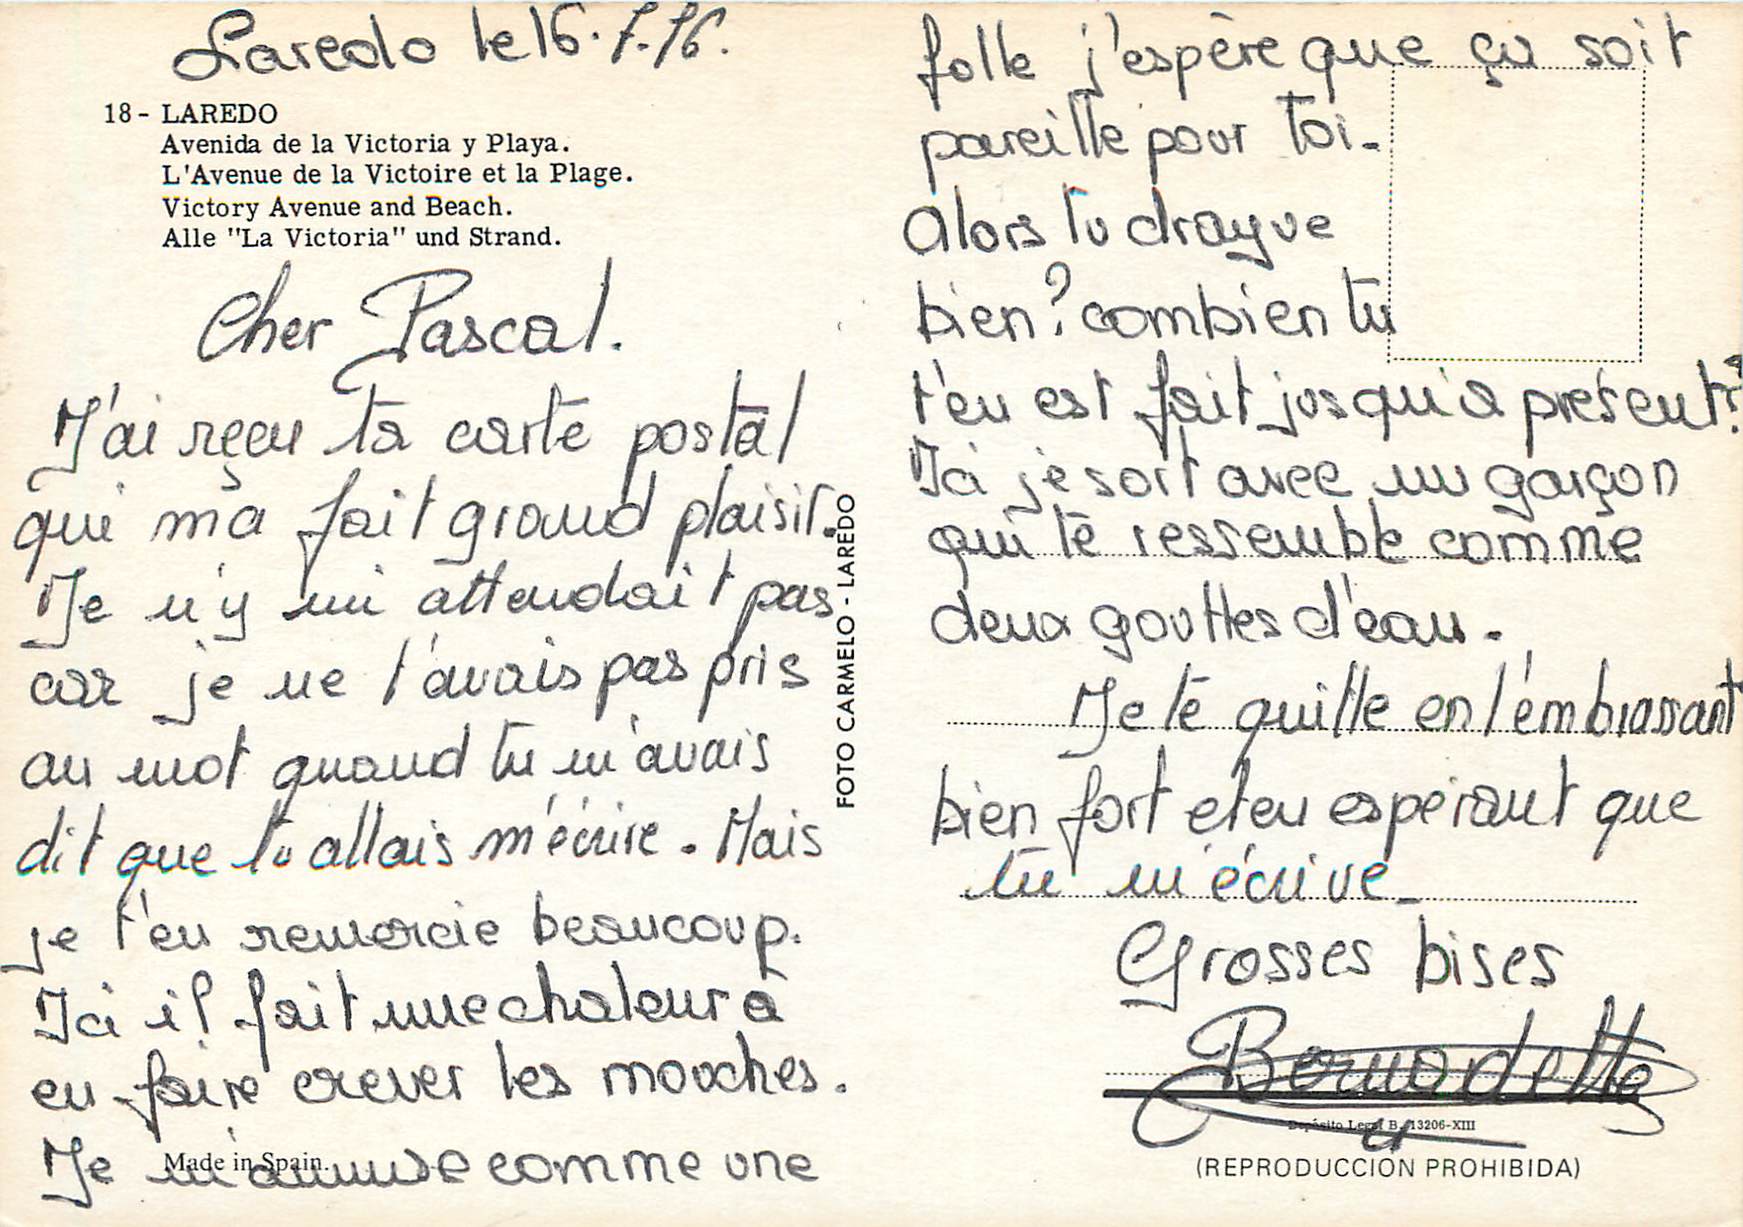 Laredo le 16.7.76.
18- LAREDO
Avenida de la Victoria y Playa.
L'Avenue de la Victoire et la Plage.
Victory Avenue and Beach.
Alle "La Victoria" und Strand.
Cher Pascal.
J'ai reçu ta carte postal
qui ma fait grand plaisir.
Je n'y mi attendait pas
car je ne t'avais pas pris
au mot quand tu m'avais
dit que tu allais m'écrire. Mais
je t'en remercie beaucoup.
Ici il fait une chaleur à
en faire crever les mouches.
Je m'amuse comme une
Made in Spain.
FOTO CARMELO - LAREDO
folle j'espère que ça soit
pareille pour toi.
Alors tu drayve
bien? combien tu
t'en est fait jusqu'à présent?
Ici je sort avec un garçon
qui te ressemble comme
deux gouttes d'eau.
Je te quitte en t'embrassant
bien fort et en espérant que
tu m'écrive_
Grosses bises
Bernadette
Depósito Legal B. 13206-XIII
(REPRODUCCION PROHIBIDA)